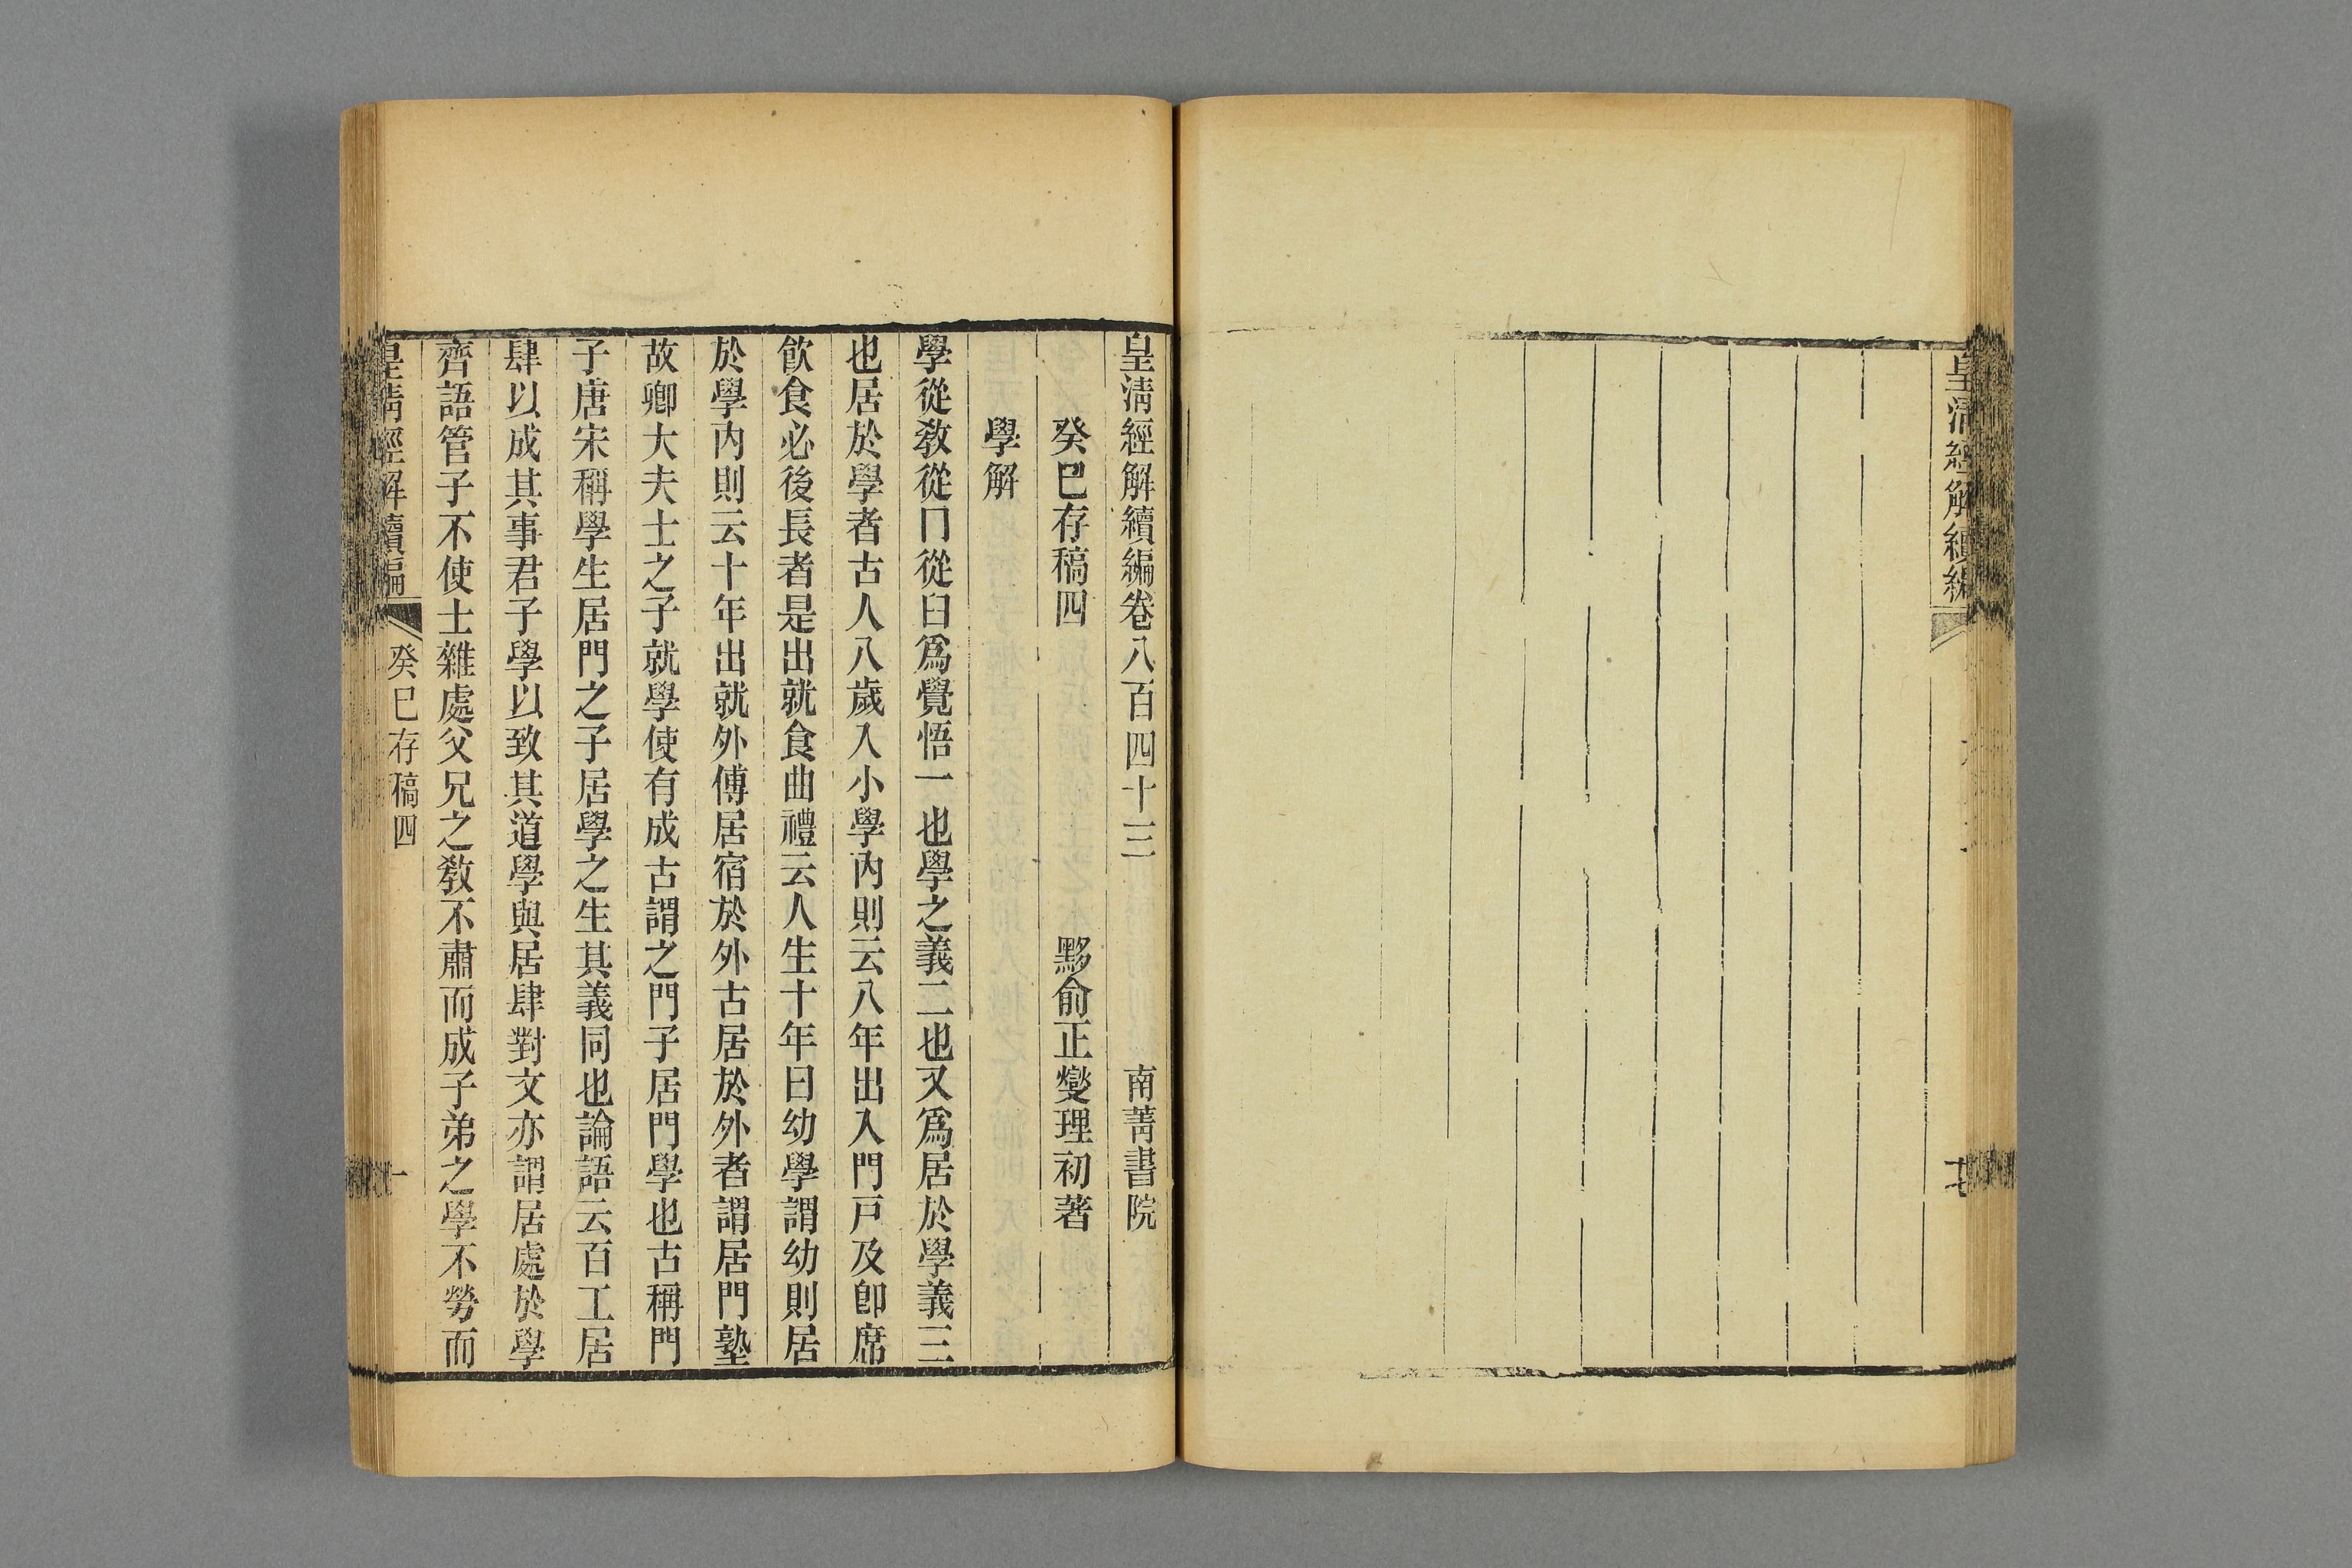 皇清經解續編
皇清經解續編卷八百四十三　南菁書院
癸巳存稿四　黟俞正燮理初著
學解
學從教從冂從臼爲覺悟一也學之義二也又爲居於學義三
也居於學者古人八歲入小學內則云八年出入門戸及卽席
飮食必後長者是出就食曲禮云人生十年曰幼學謂幼則居
於學內則云十年出就外傅居宿於外古居於外者謂居門塾
故卿大夫士之子就學使有成古謂之門子居門學也古稱門
子唐宋稱學生居門之子居學之生其義同也論語云百工居
肆以成其事君子學以致其道學與居肆對文亦謂居處於學
齊語管子不使士雜處父兄之敎不肅而成子弟之學不勞而
皇清經解續編　癸巳存稿四　一